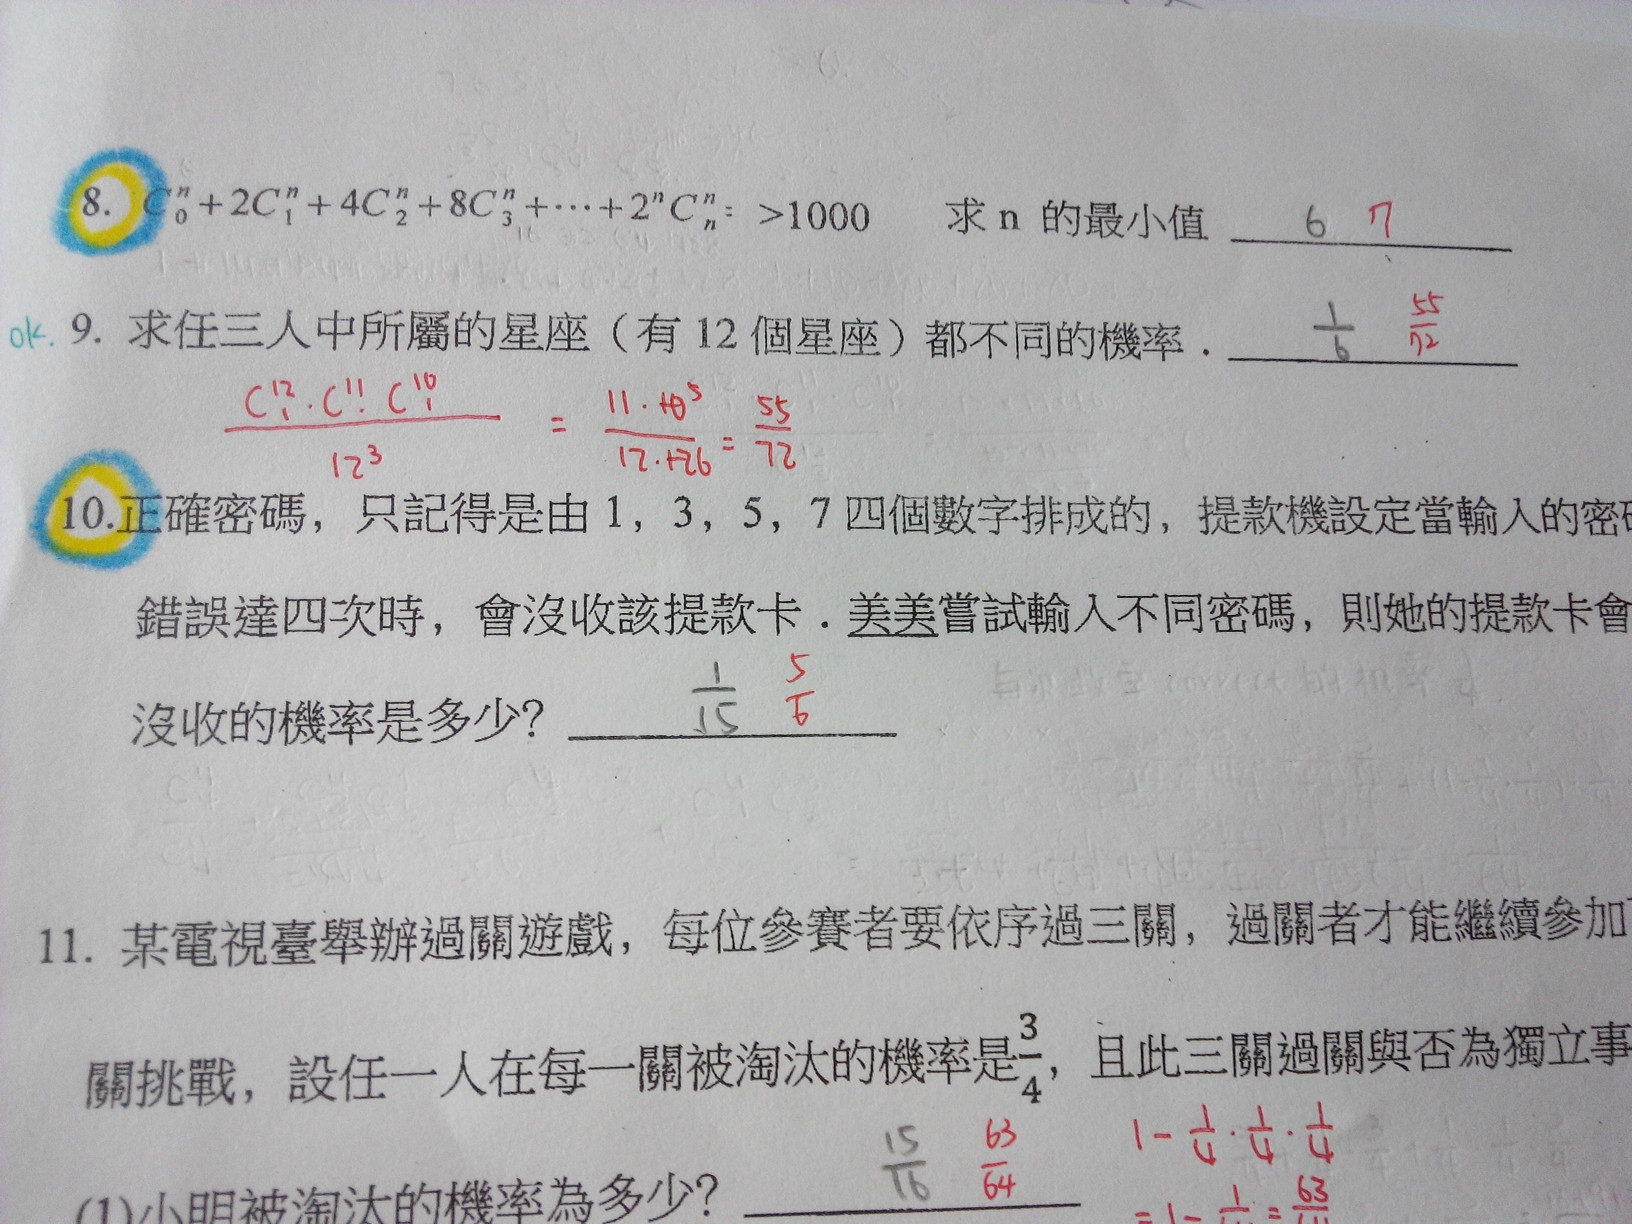 8. C₀ⁿ+2C₁ⁿ+4C₂ⁿ+8C₃ⁿ+⋯+2ⁿCₙⁿ= >1000 求 n 的最小值 6 7
ok. 9. 求任三人中所屬的星座（有 12 個星座）都不同的機率．1/6 55/72
C₁¹²·C₁¹¹ C₁¹⁰/12³ = 11·10⁵/12·126 = 55/72
10.正確密碼，只記得是由 1，3，5，7 四個數字排成的，提款機設定當輸入的密
錯誤達四次時，會沒收該提款卡．美美嘗試輸入不同密碼，則她的提款卡會
沒收的機率是多少? 1/15 5/6
11. 某電視臺舉辦過關遊戲，每位參賽者要依序過三關，過關者才能繼續參加
關挑戰，設任一人在每一關被淘汰的機率是3/4，且此三關過關與否為獨立事
1-1/4·1/4·1/4
(1)小明被淘汰的機率為多少? 15/16 63/64